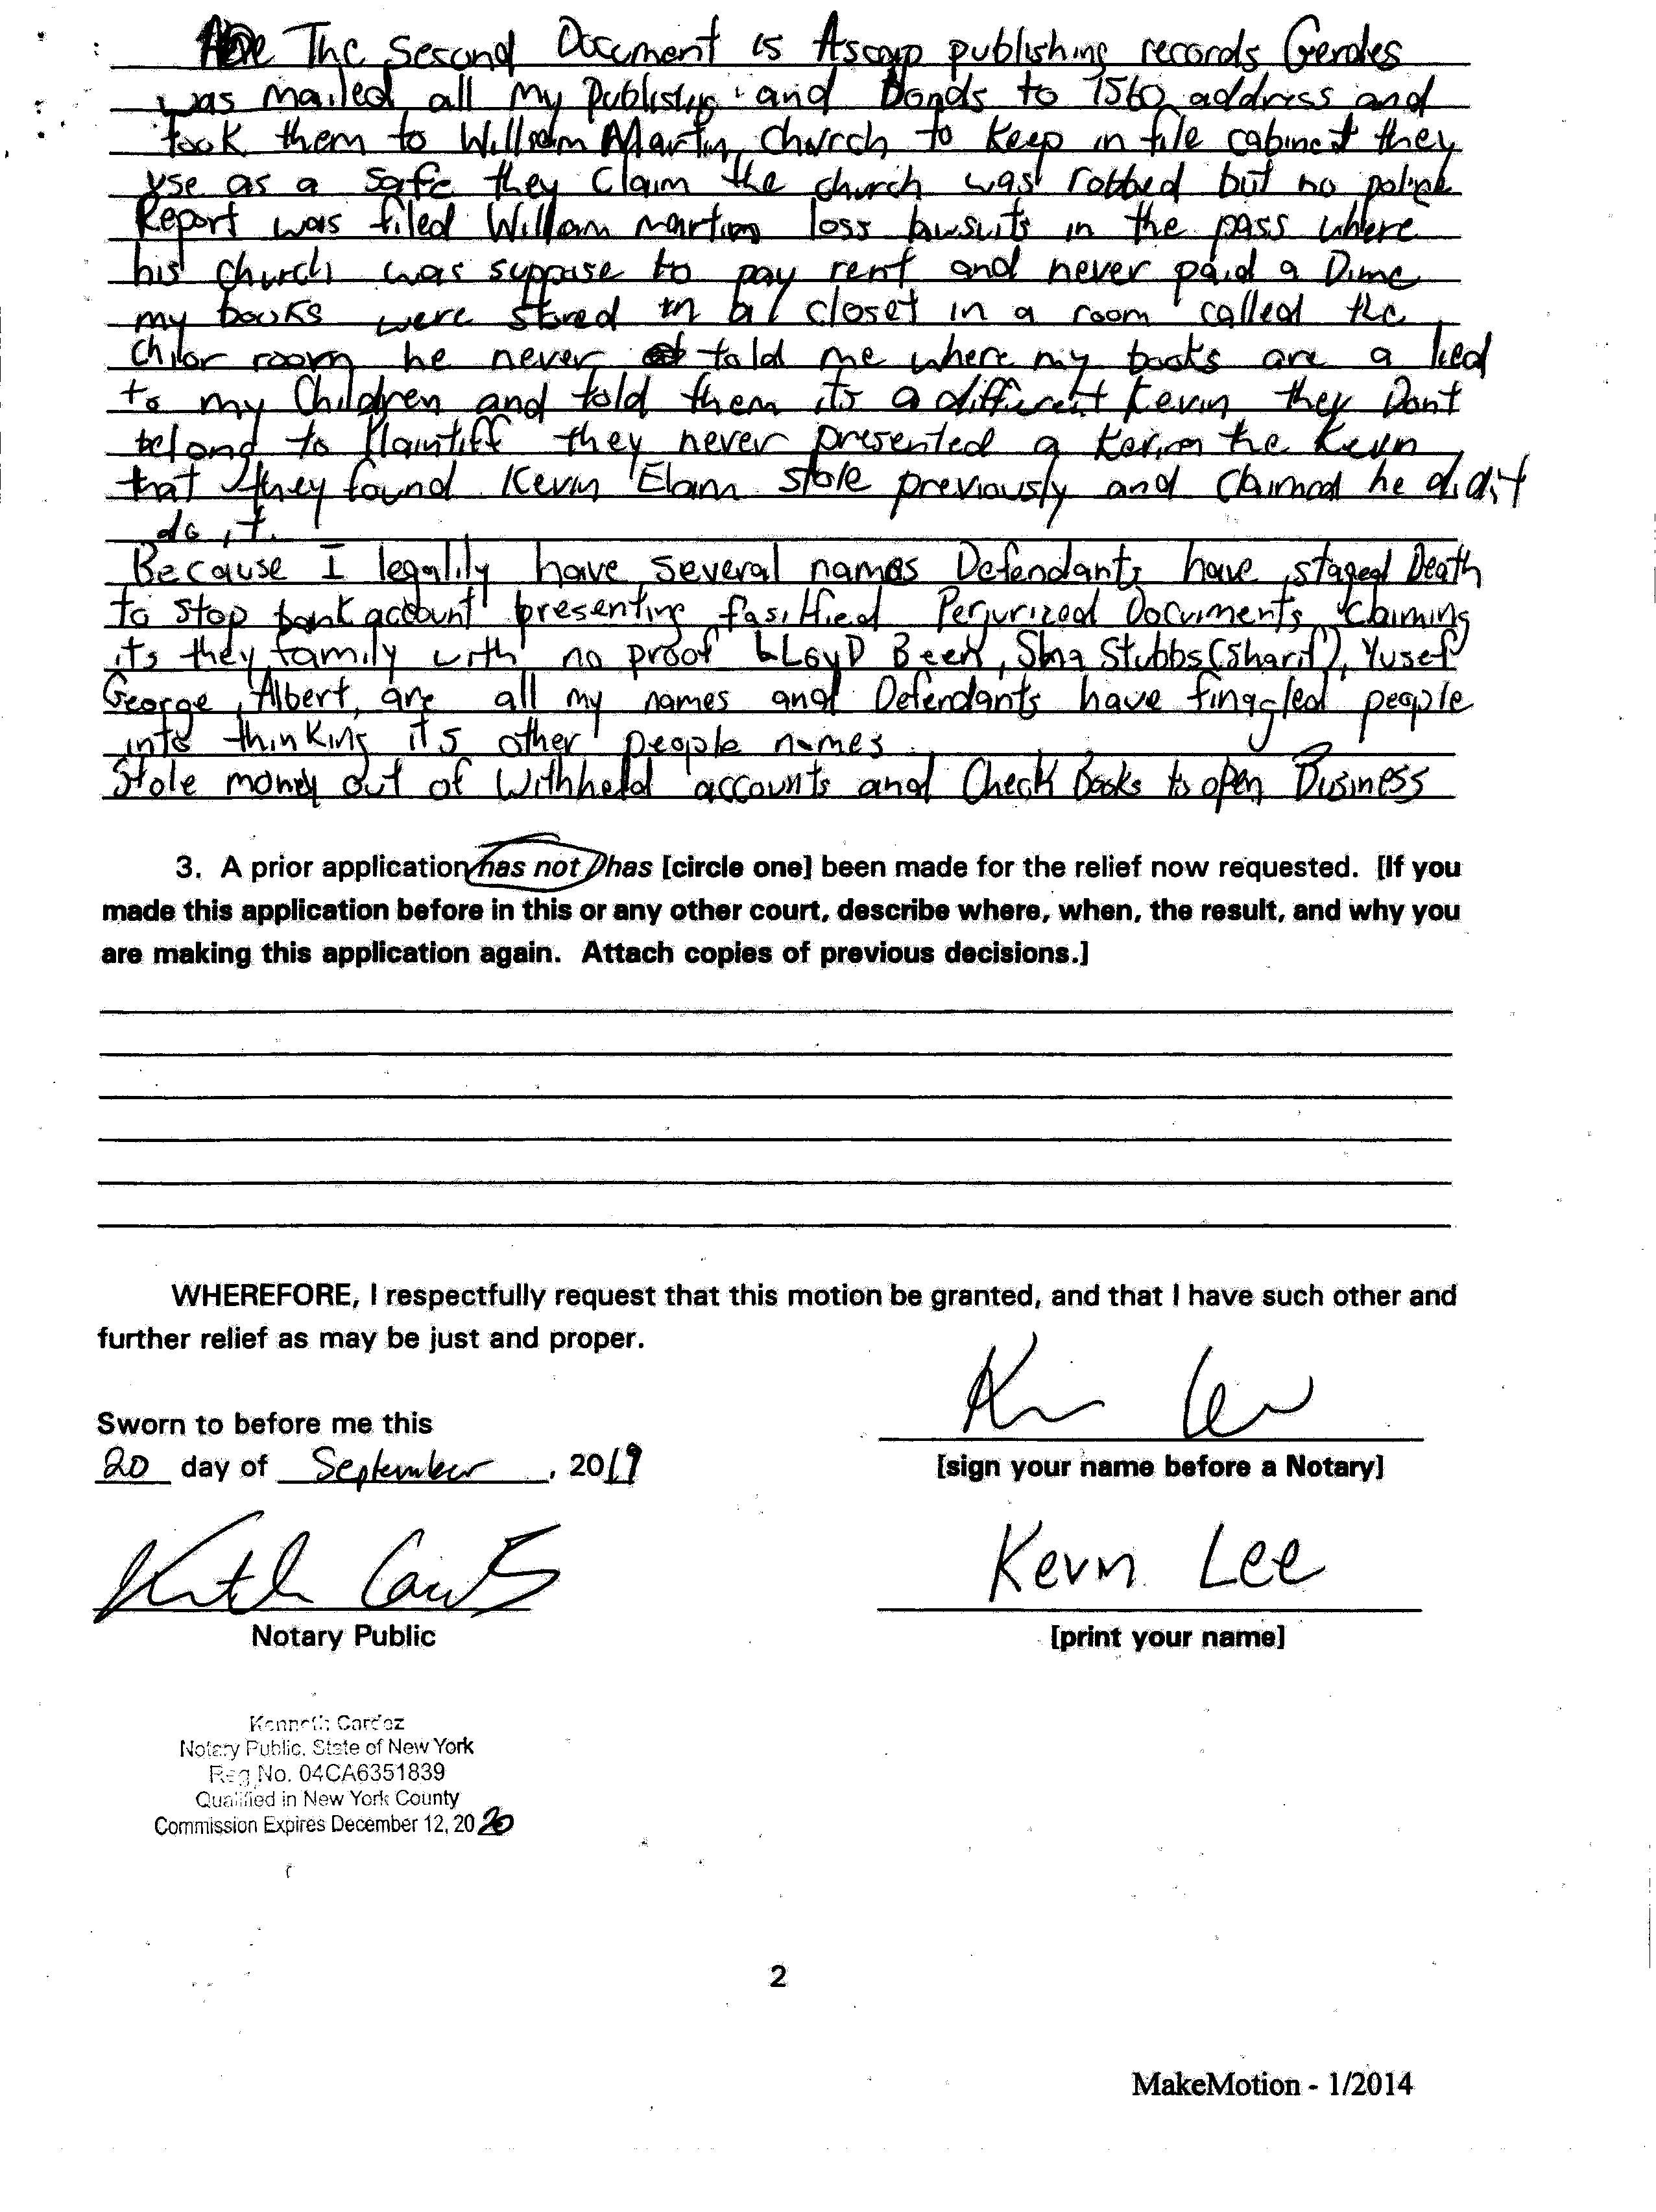 The Second Document is Ascap publishing records Gerdes
was mailed all my Publishing and Bonds to 1560 address and
took them to William Martin church to keep in file cabinet they
use as a safe they claim the church was robbed but no
Report was filed William martin loss lawsuits in the pass where
his church was suppose to pay rent and never paid a Dime
my books were stored in a closet in a room called the
Chior room he never told me where my books are a lied
to my Children and told them its a different Kevin they Dont
belong to Plaintiff they never presented a the Kevin
that they found Kevin Elam stole previously and claimed he didit
do it.
Because I legalily have several names Defendants have staged Death
to stop bank account presenting Perjurized Documents claiming
its they family with no proof LLoyD Beer, Stubbs (Sharif), Yusef
George, Albert, are all my names and Defendants have finggled people
into thinking its other people names
Stole money out of Withheld accounts and Check Books to open Business
3. A prior application has not / has [circle one] been made for the relief now requested. [If you
made this application before in this or any other court, describe where, when, the result, and why you
are making this application again. Attach copies of previous decisions.]
WHEREFORE, I respectfully request that this motion be granted, and that I have such other and
further relief as may be just and proper.
Sworn to before me this
20 day of September, 2019
[sign your name before a Notary]
Kevin Lee
Notary Public
[print your name]
Kenneth Cardoz
Notary Public, State of New York
Reg No. 04CA6351839
Qualified in New York County
Commission Expires December 12, 2020
2
MakeMotion - 1/2014